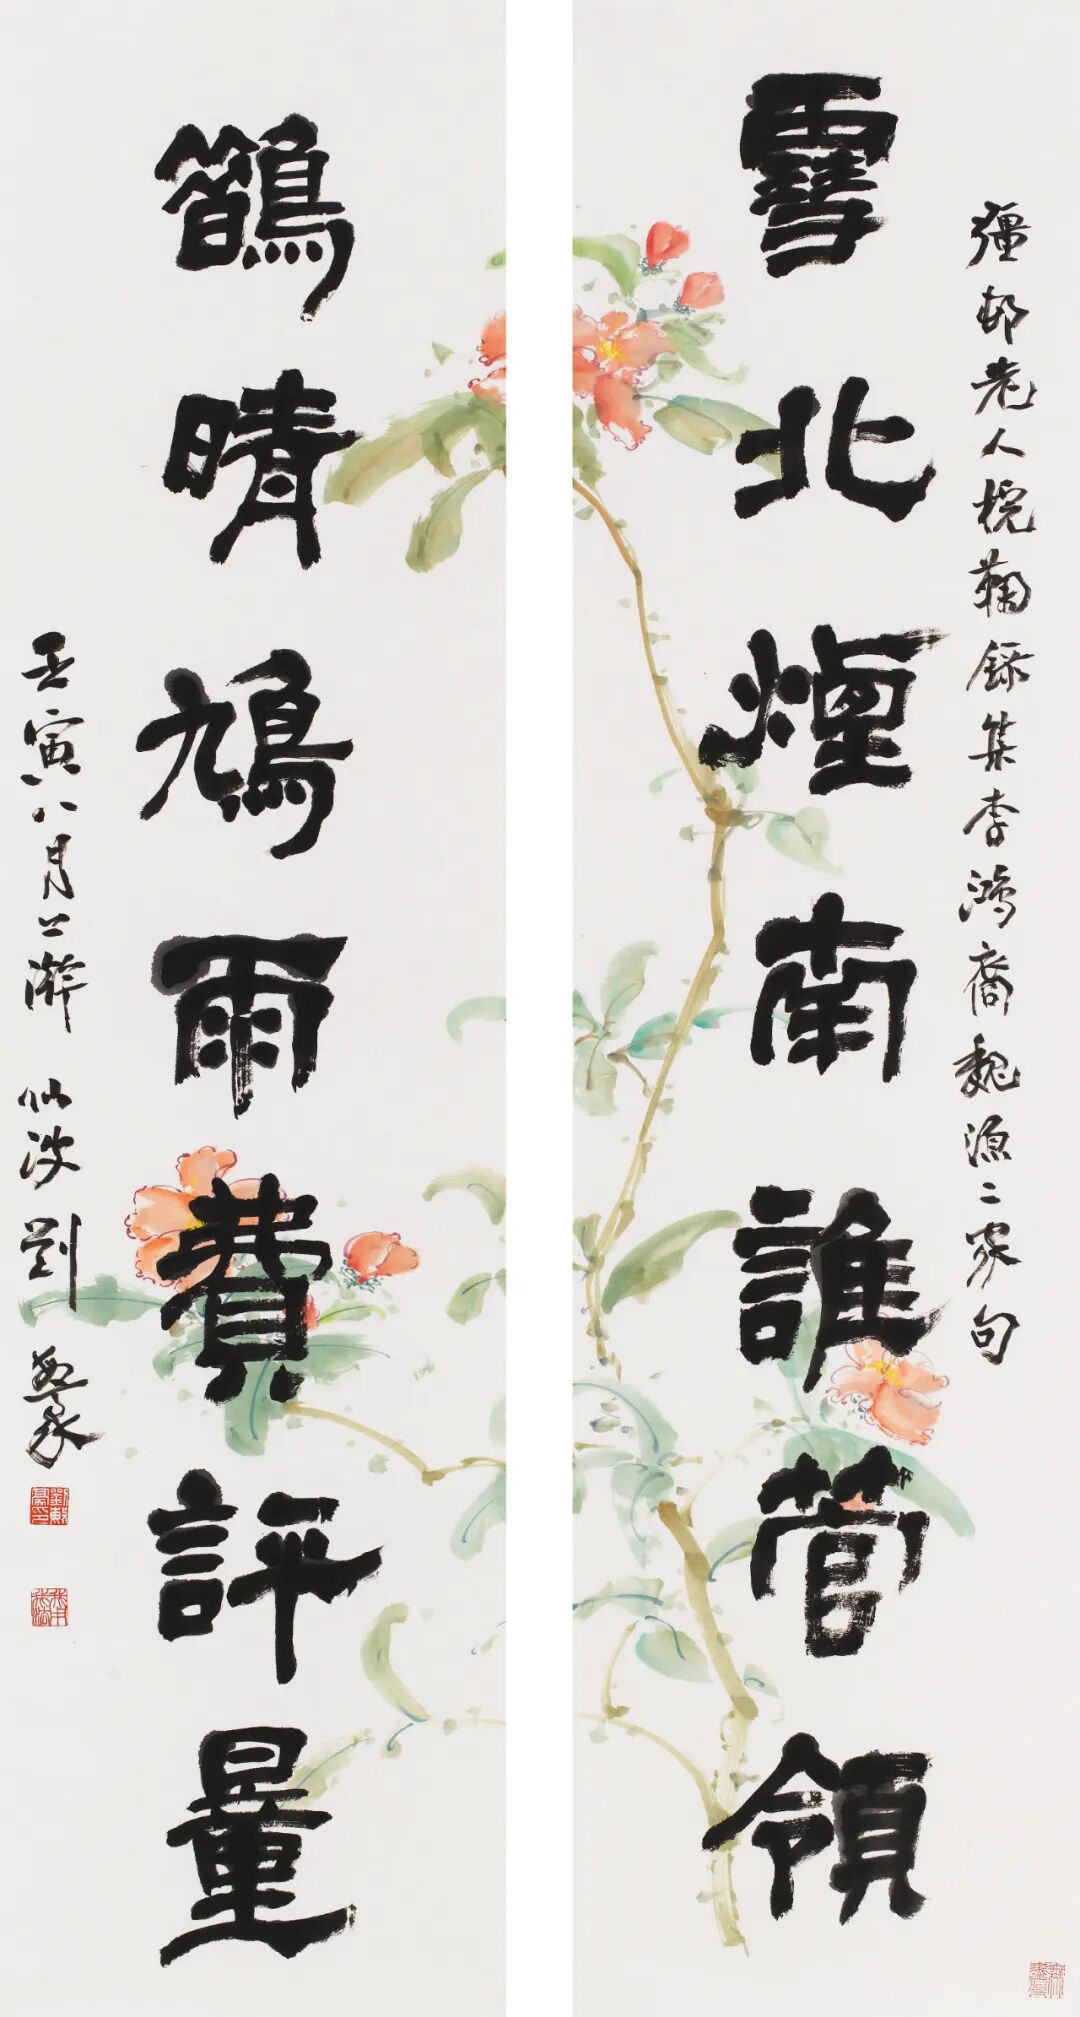 彊邨老人梡鞠錄集李鴻裔魏源二家句
雪北煙南誰管領
鵲晴鳩雨費評量
壬寅八月上澣 仙 劉